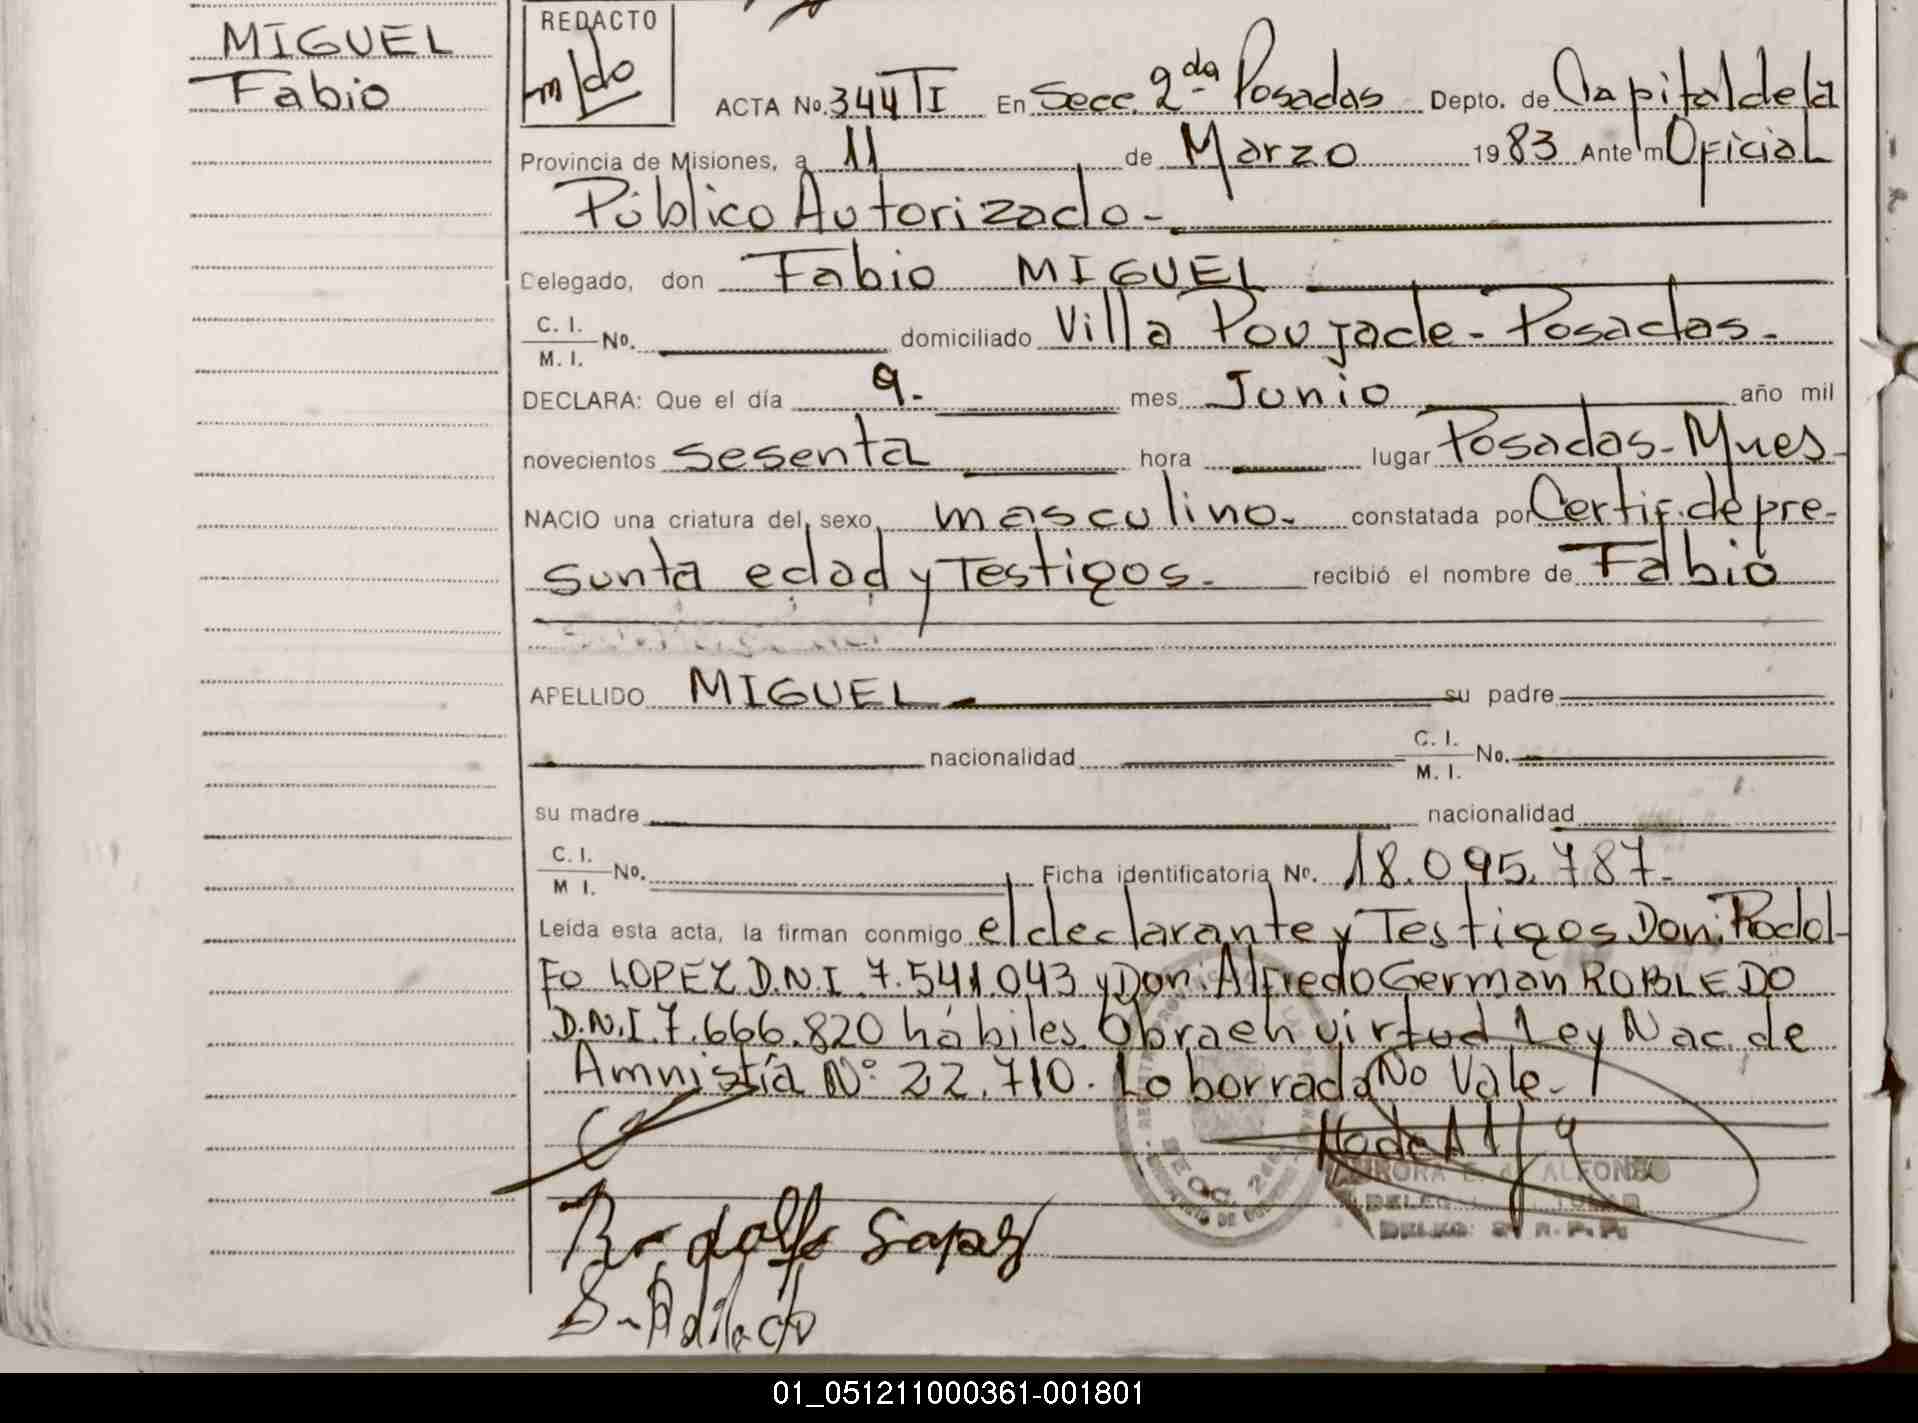 MIGUEL
Fabio
REDACTO
ACTA No. 344 TI En Secc. 2da Posadas Depto. de Capital de la
Provincia de Misiones, a 11 de Marzo 1983 Ante mí Oficial
Público Autorizado-
Delegado, don Fabio MIGUEL
C. I.
M. I. No. domiciliado Villa Poujade - Posadas -
DECLARA: Que el día 9. mes Junio año mil
novecientos sesenta hora lugar Posadas - Mnes -
NACIO una criatura del sexo masculino. constatada por Certif. de pre-
sunta edad y Testigos. recibió el nombre de Fabio
APELLIDO MIGUEL su padre
nacionalidad C. I.
M. I. No.
su madre nacionalidad
C. I.
M I. No. Ficha identificatoria No. 18.095.787.
Leída esta acta, la firman conmigo el declarante y Testigos Don: Rodol-
Fo LOPEZ D.N.I 7.541.043 y Don: Alfredo German ROBLEDO
D.N.I. 7.666.820 hábiles. Obra en virtud Ley Nac. de
Amnistía Nº 22.710. Lo borrado No Vale.
ALFONSO
Rodolfo Lopez
01_051211000361-001801